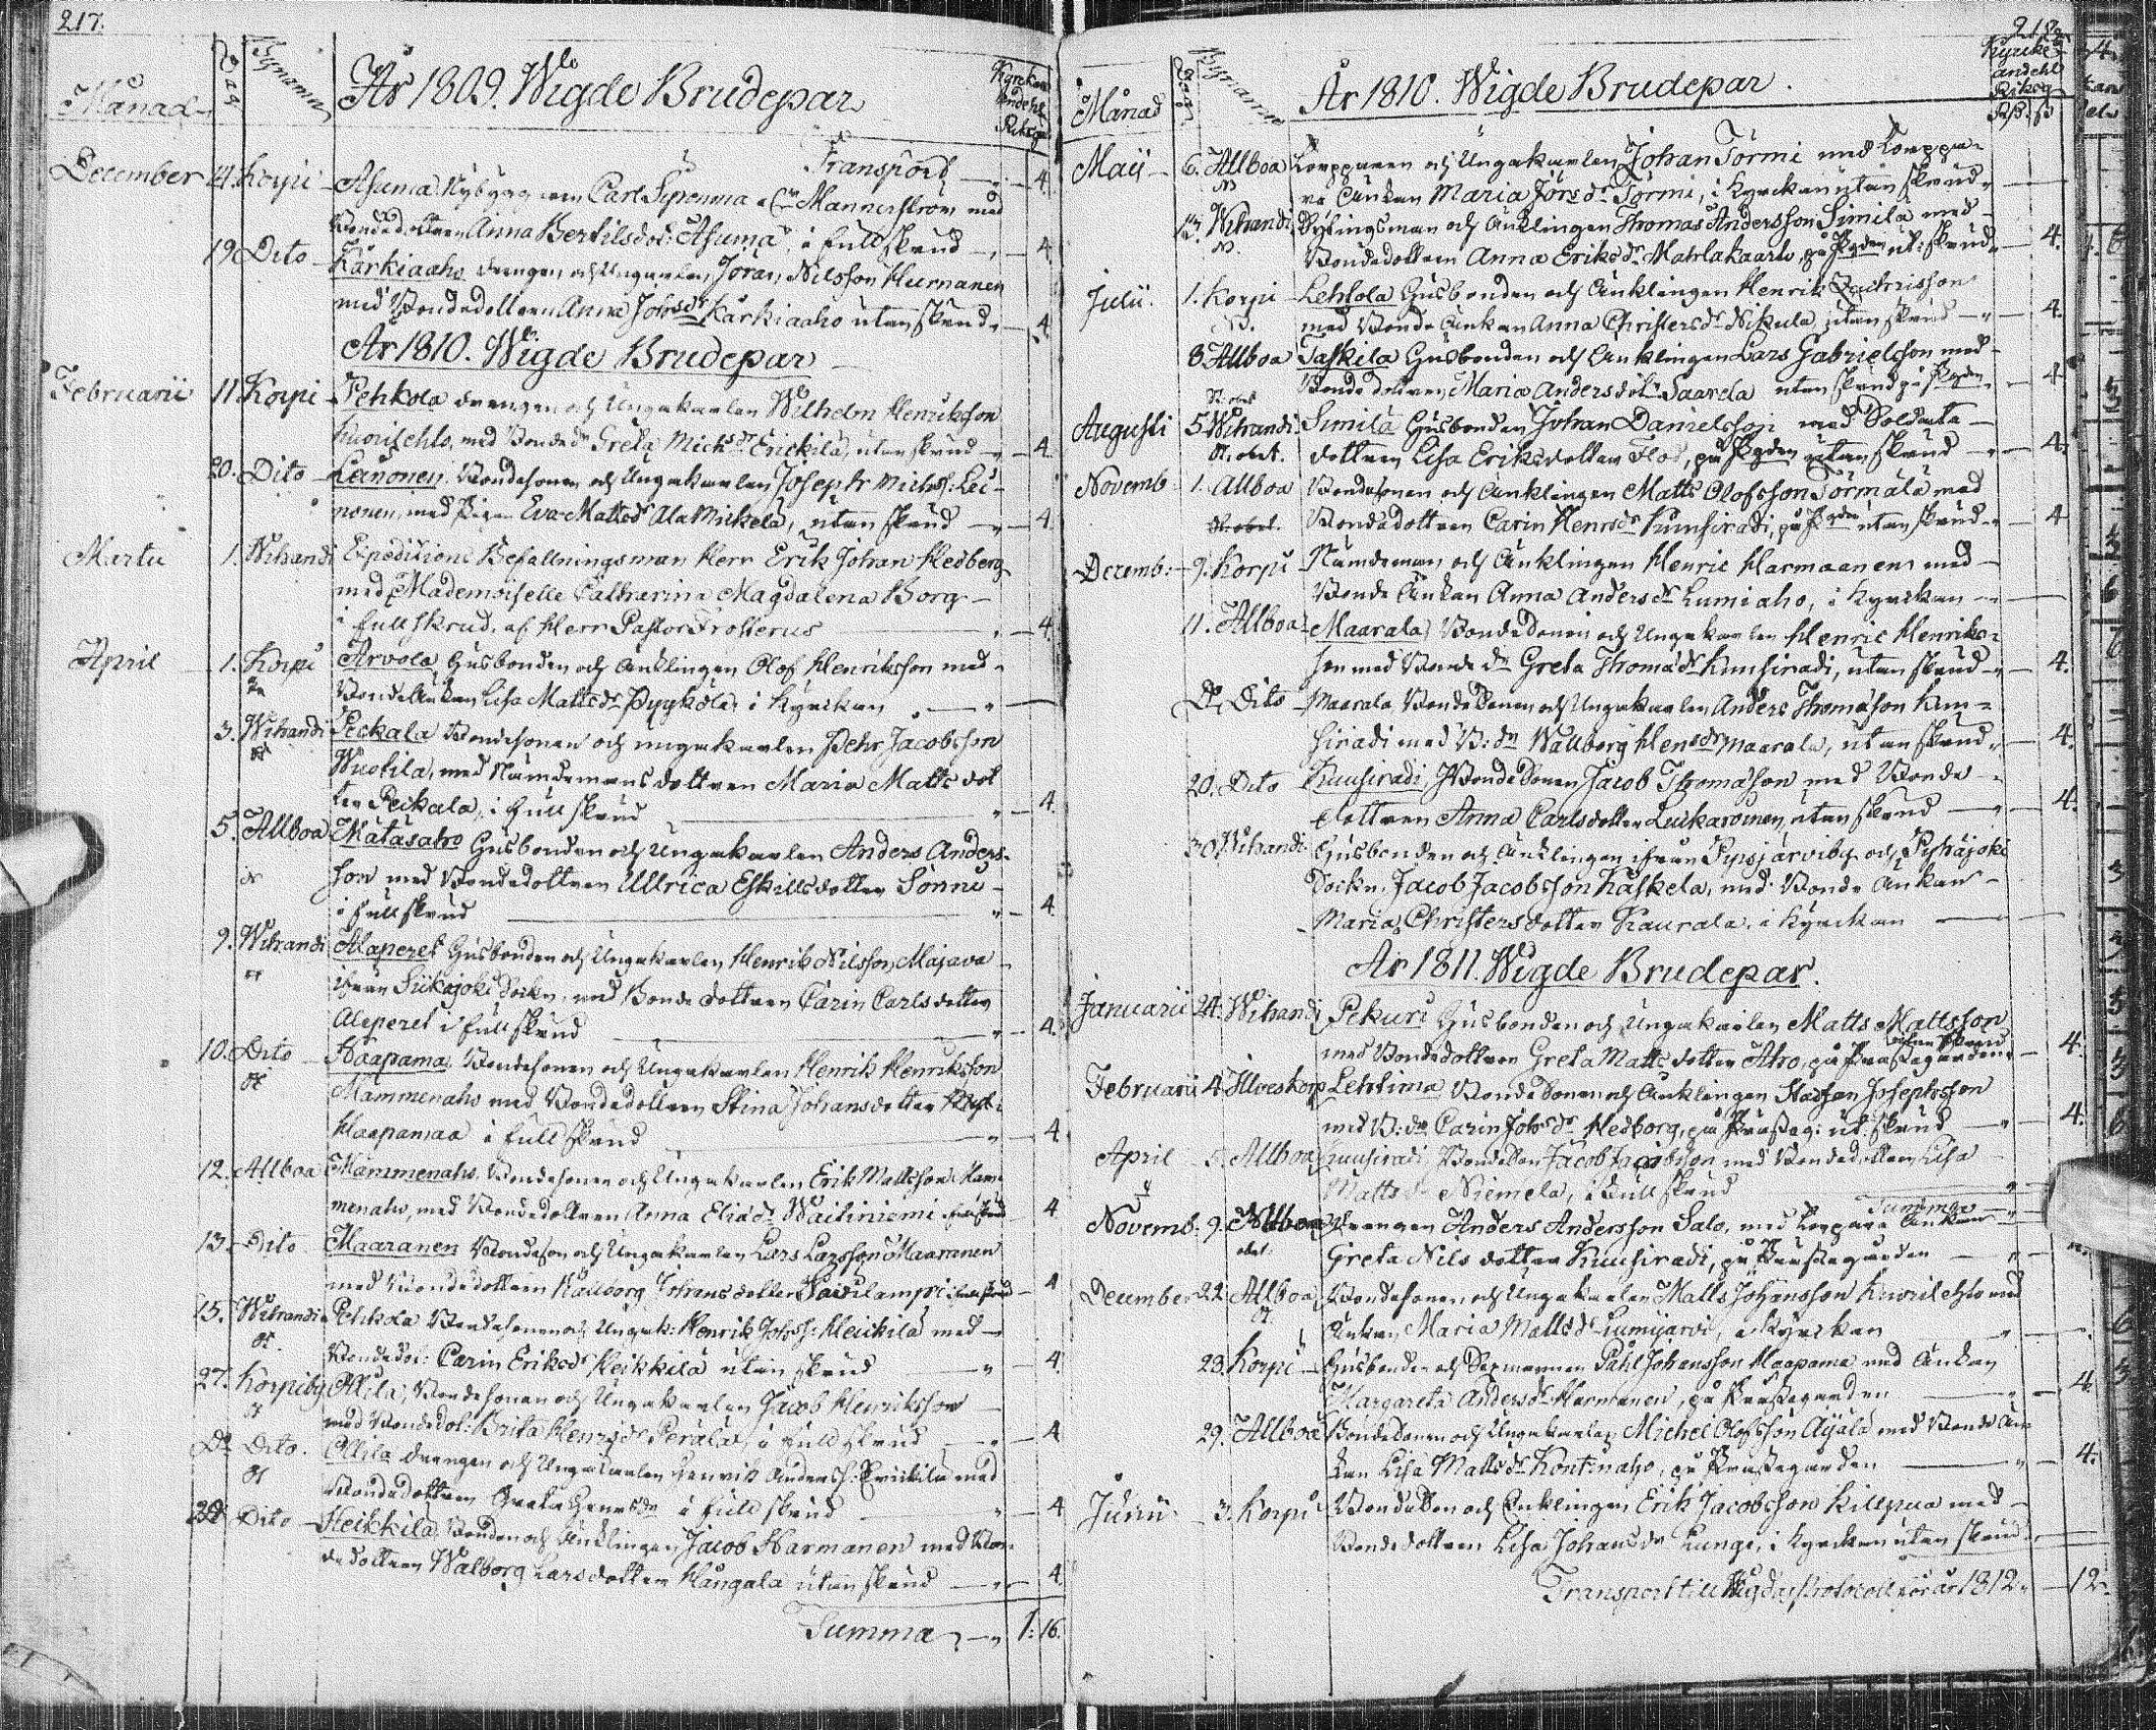 217.
Månad
Dag
Bynamn
År 1809. Wigde Brudepar
Kyrckans
Andehl
Riksg
Transport — 4.
December 4. Korpi Asuma Nybyggaren Carl Sipenma Mannerström med
Bondedottren Anna Bertilsdot: Asuma i full skrud — 4.
19 Dito Kärkiaaho drengen och Ungkarlen Jöran Nilsson Hurnanen
med Bondedottren Anna Johsdr Kärkiaaho utan skrud — 4
År 1810. Wigde Brudepar
Februarii 11 Korpi Pehkola drengen och Ungakarlen Wilhelm Henriksson
Kuorilehto, med Bondedr Greta Michsdr Erickilä, utan skrud — 4.
20. Dito Leinonen Bondesonen och Ungakarlen Joseph Michss: Lei-
nonen, med Pigan Eva Mattsdr Ala Mickelä, utan skrud — 4.
Martii 1. Wihandi Expeditions Befallningsman Herr Erik Johan Hedberg
med Mademoiselle Catharina Magdalena Borg
i full skrud, af Herr Pastor Frosterus — 4.
April 1. Korpi Arvola Husbonden och Ancklingen Olof Henriksson med
Bonde Enkan Lisa Mattsdr Pyykölä i Kyrckan —
3. Wihandi Peckala Bondesonen och ungakarlen Pehr Jacobsson
Wuotila, med Nämdemans dottren Maria Matts dot
ter Peikala, i full skrud — 4.
5. Allboa Matasaho Husbonden och Ungakarlen Anders Anders-
son med Bondedottren Ullrica Eskillsdotter Sonni
i full skrud — 4.
9. Wihandi Alaperet Husbonden och Ungakarlen Henrik Nilsson Majava
ifrån Siikajoki Sockn, med Bonde dottren Carin Carlsdotter
Aleperet i full skrud — 4.
10. Dito Haapama Bondesonen och Ungakarlen Henrik Henriksson
Mammenaho med Bondedottren Stina Johansdotter
Haapamaa i full skrud — 4.
12. Allboa Mammenaho, Bondesonen och Ungakarlen Erik Mattsson Mam-
menaho, med Bondedottren Anna Eliædr Waitiniemi full skrud 4
13. Dito Maaranen Bondeson och Ungakarlen Lars Larsson Maaranen
med Bondedottren Wallborg Johansdotter Savilampi i full skrud 4
15. Wihandi Pehkola Bondesonen och Ungak: Henrik Johss: Heickilä med
Bondedot: Carin Eriksdr Heikkilä utan skrud — 4.
27. Korpiby Ollila, Bondesonen och Ungakarlen Jacob Henriksson
med Bondedot: Brita Henrsdr Perälä, i full skrud — 4
Do Dito. Ollila drengen och Ungakarlen Henrik Anderss: Erickilä med
Bondedottren Greta Henrsdr i full skrud — 4
Dito Heikkilä Bonden och Ancklingen Jacob Harmanen med Bon-
dedottren Walborg Larsdotter Hangala utan skrud — 4.
Summa — 1: 16.
Månad
Dag
Bynamn
År 1810. Wigde Brudepar.
Kyrcke
andehl
Riksg
Maij 6. Allboa Torpparen och Ungakarlen Johan Törmi med Torppa-
re Änckan Maria Jörsdr Törmi, i Kyrckan utan skrud
13. Wihandi Rytingsman och Ancklingen Thomas Andersson Similä med
Bondedottren Anna Eriksdr Mattlakaarto, på Pgden ut: skrud 4.
Julii 1. Korpi Lehtola Husbonden och Ancklingen Henrik Zachrisson
med Bonde Änkan Anna Christersdr Nikula, utan skrud — 4.
8. Allboa Taskila Husbonden och Ancklingen Lars Gabrielsson med
Bonde dottren Maria Andersdotr Saarela utan skrud på Pgden 4
Augusti 5 Wihandi Similä Husbonden Johan Danielsson med Soldate
St. obet. dottren Lisa Eriksdotter Flod, på Pgden utan skrud — 4.
Novemb: 1. Allboa Bondesonen och Ancklingen Matts Olofsson Törmälä med
St. obet. Bondedottren Carin Henrsdr Kuusiradi, på Pgden utan skrud 4
Decemb: 9. Korpi Nämdeman och Ancklingen Henric Harmaanen med
Bonde Änckan Anna Andersdr Lumiaho, i Kyrckan —
11. Allboa Maarala Bondesonen och Ungakarlen Henric Henriks-
son med Bonde dr Greta Thomædr Kuusiradi, utan skrud 4.
Do Dito Maarala Bondesonen och Ungakarlen Anders Thomæson Kuu-
siradi med B: dr Wallborg Hensdr Maarala, utan skrud 4.
20. Dito Kuusiradi, Bondesonen Jacob Thomæson med Bonde
dottren Anna Carlsdotter Luckaroinen, utan skrud — 4.
30. Wihandi Husbonden och Ancklingen ifrån Pyhjärviby och Pyhäjoki
Sockn. Jacob Jacobsson Käskelä, med Bonde Änkan
Maria Christersdotter Kaurala, i Kyrckan —
År 1811. Wigde Brudepar.
Januarii 24. Wihandi Pekuri Husbonden och Ungakarlen Matts Mattsson
utan skrud
med Bondedottren Greta Matts dotter Aho, på Prästegården 4.
Februarii 4. Ilveskorp Lehtima Bondesonen och Ancklingen Staffan Josephsson
med B: dr Carin Johsdr Hedborg, på Prästeg: ut: skrud — 4.
April 5. Allboa Kuusiradi Bonde Son Jacob Jacobsson med Bondedottren Lisa
Mattsdr Niemelä, i full skrud —
Summa
Novemb: 9. Allboa Drengen Anders Andersson Salo, med Torpare Änkan
obet. Greta Nils dotter Kuusiradi, på Prästegården —
December 22. Allboa Bondesonen och Ungakarlen Matts Johansson Kuorilehto med
Änkan Maria Mattsdr Lumijarvi, i Kyrckan —
28. Korpi Husbonden och Sexmannen Påhl Johansson Haapama med Änkan
Margareta Andersdr Harmanen, på Prästegården — 4.
29. Allboa Bondesonen och Ungakarlen Michel Olofsson Äijälä med Bonde Än-
kan Lisa Mattsdr Kontinaho, på Prästegården — 4.
Junii 3. Korpi Bondeson och Ancklingen Erik Jacobsson Killpua med
Bondedottren Lisa Johansdr Lunge, i Kyrckan utan skrud —
Transport till Wigde Protocoll för år 1812. — 12.